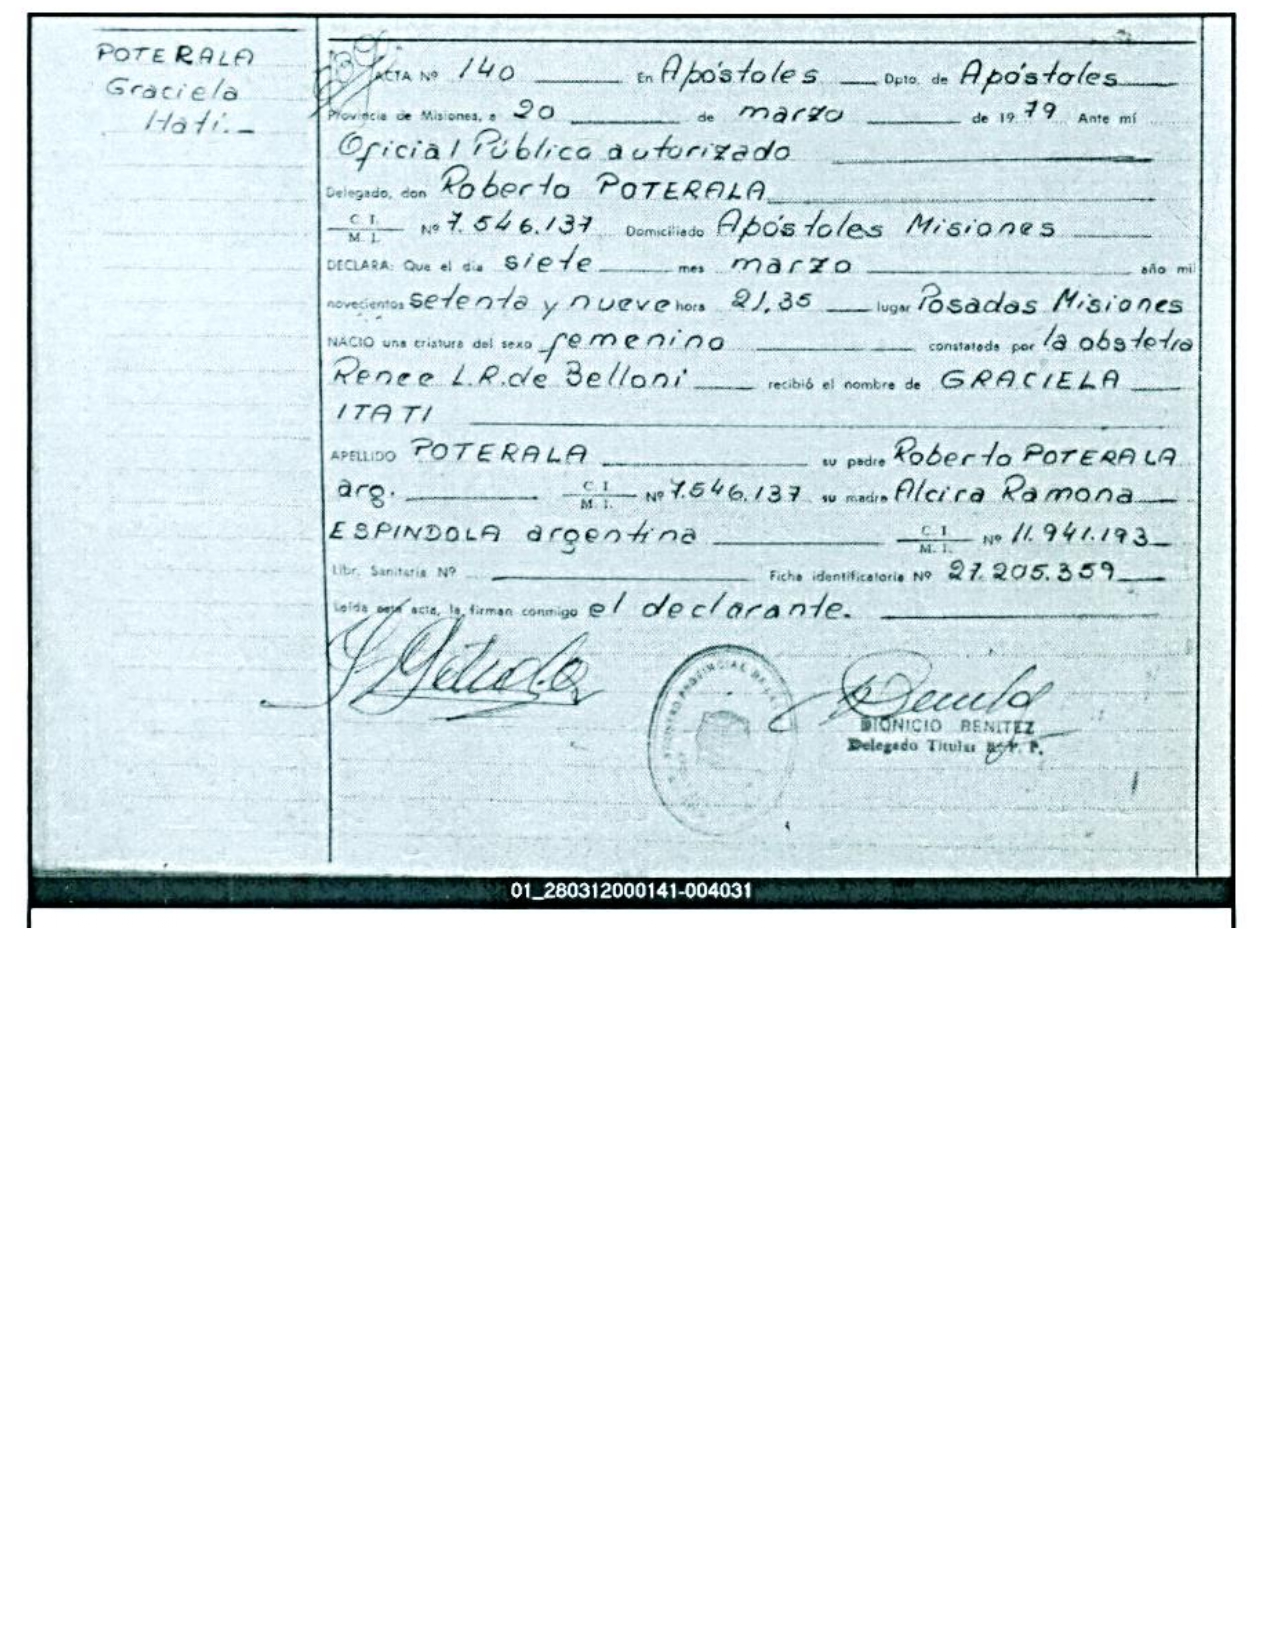 POTERALA
Graciela
Itati._
ACTA Nº 140 En Apóstoles Dpto. de Apóstoles
Provincia de Misiones, a 20 de marzo de 1979 Ante mí
Oficial Público autorizado
Delegado, don Roberto POTERALA
C. I.
M. I. Nº 7.546.137 Domiciliado Apóstoles Misiones
DECLARA: Que el día siete mes marzo año mil
novecientos setenta y nueve hora 21,35 lugar Posadas Misiones
NACIO una criatura del sexo femenino constatada por la obstetra
Renee L.R. de Belloni recibió el nombre de GRACIELA
ITATI
APELLIDO POTERALA su padre Roberto POTERALA
arg. C. I.
M. I. Nº 7.546.137 su madre Alcira Ramona
ESPINDOLA argentina C. I.
M. I. Nº 11.941.193
Libr. Sanitaria Nº Ficha identificatoria Nº 27.205.359
Leída esta acta, la firman conmigo el declarante.
DIONICIO BENITEZ
Delegado Titular R. P. P.
01_280312000141-004031